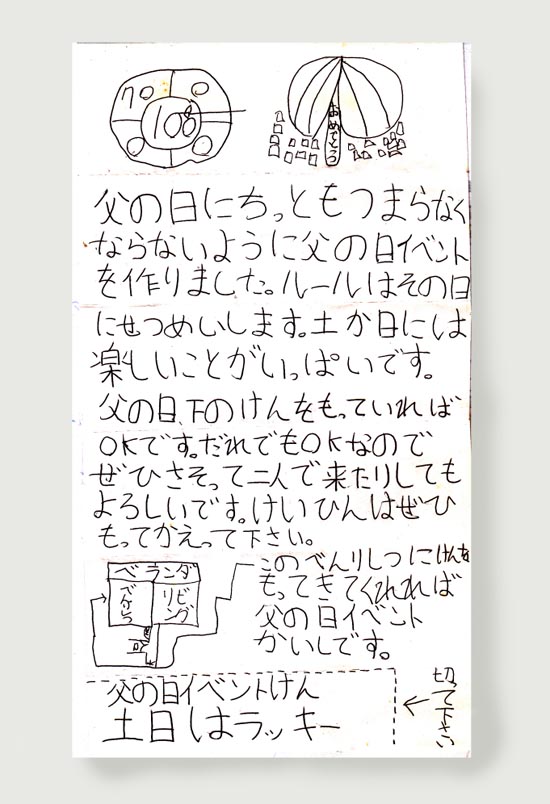 108
おめでとう
父の日にちっともつまらなく
ならないように父の日イベント
を作りました。ルールはその日
にせつめいします。土か日には
楽しいことがいっぱいです。
父の日、下のけんをもっていれば
OKです。だれでもOKなので
ぜひさそって二人で来たりしても
よろしいです。けいひんはぜひ
もってかえって下さい。
ベランダ
リビング
このべんりしつにけんを
もってきてくれれば
父の日イベント
かいしです。
父の日イベントけん
土日はラッキー
切って下さい